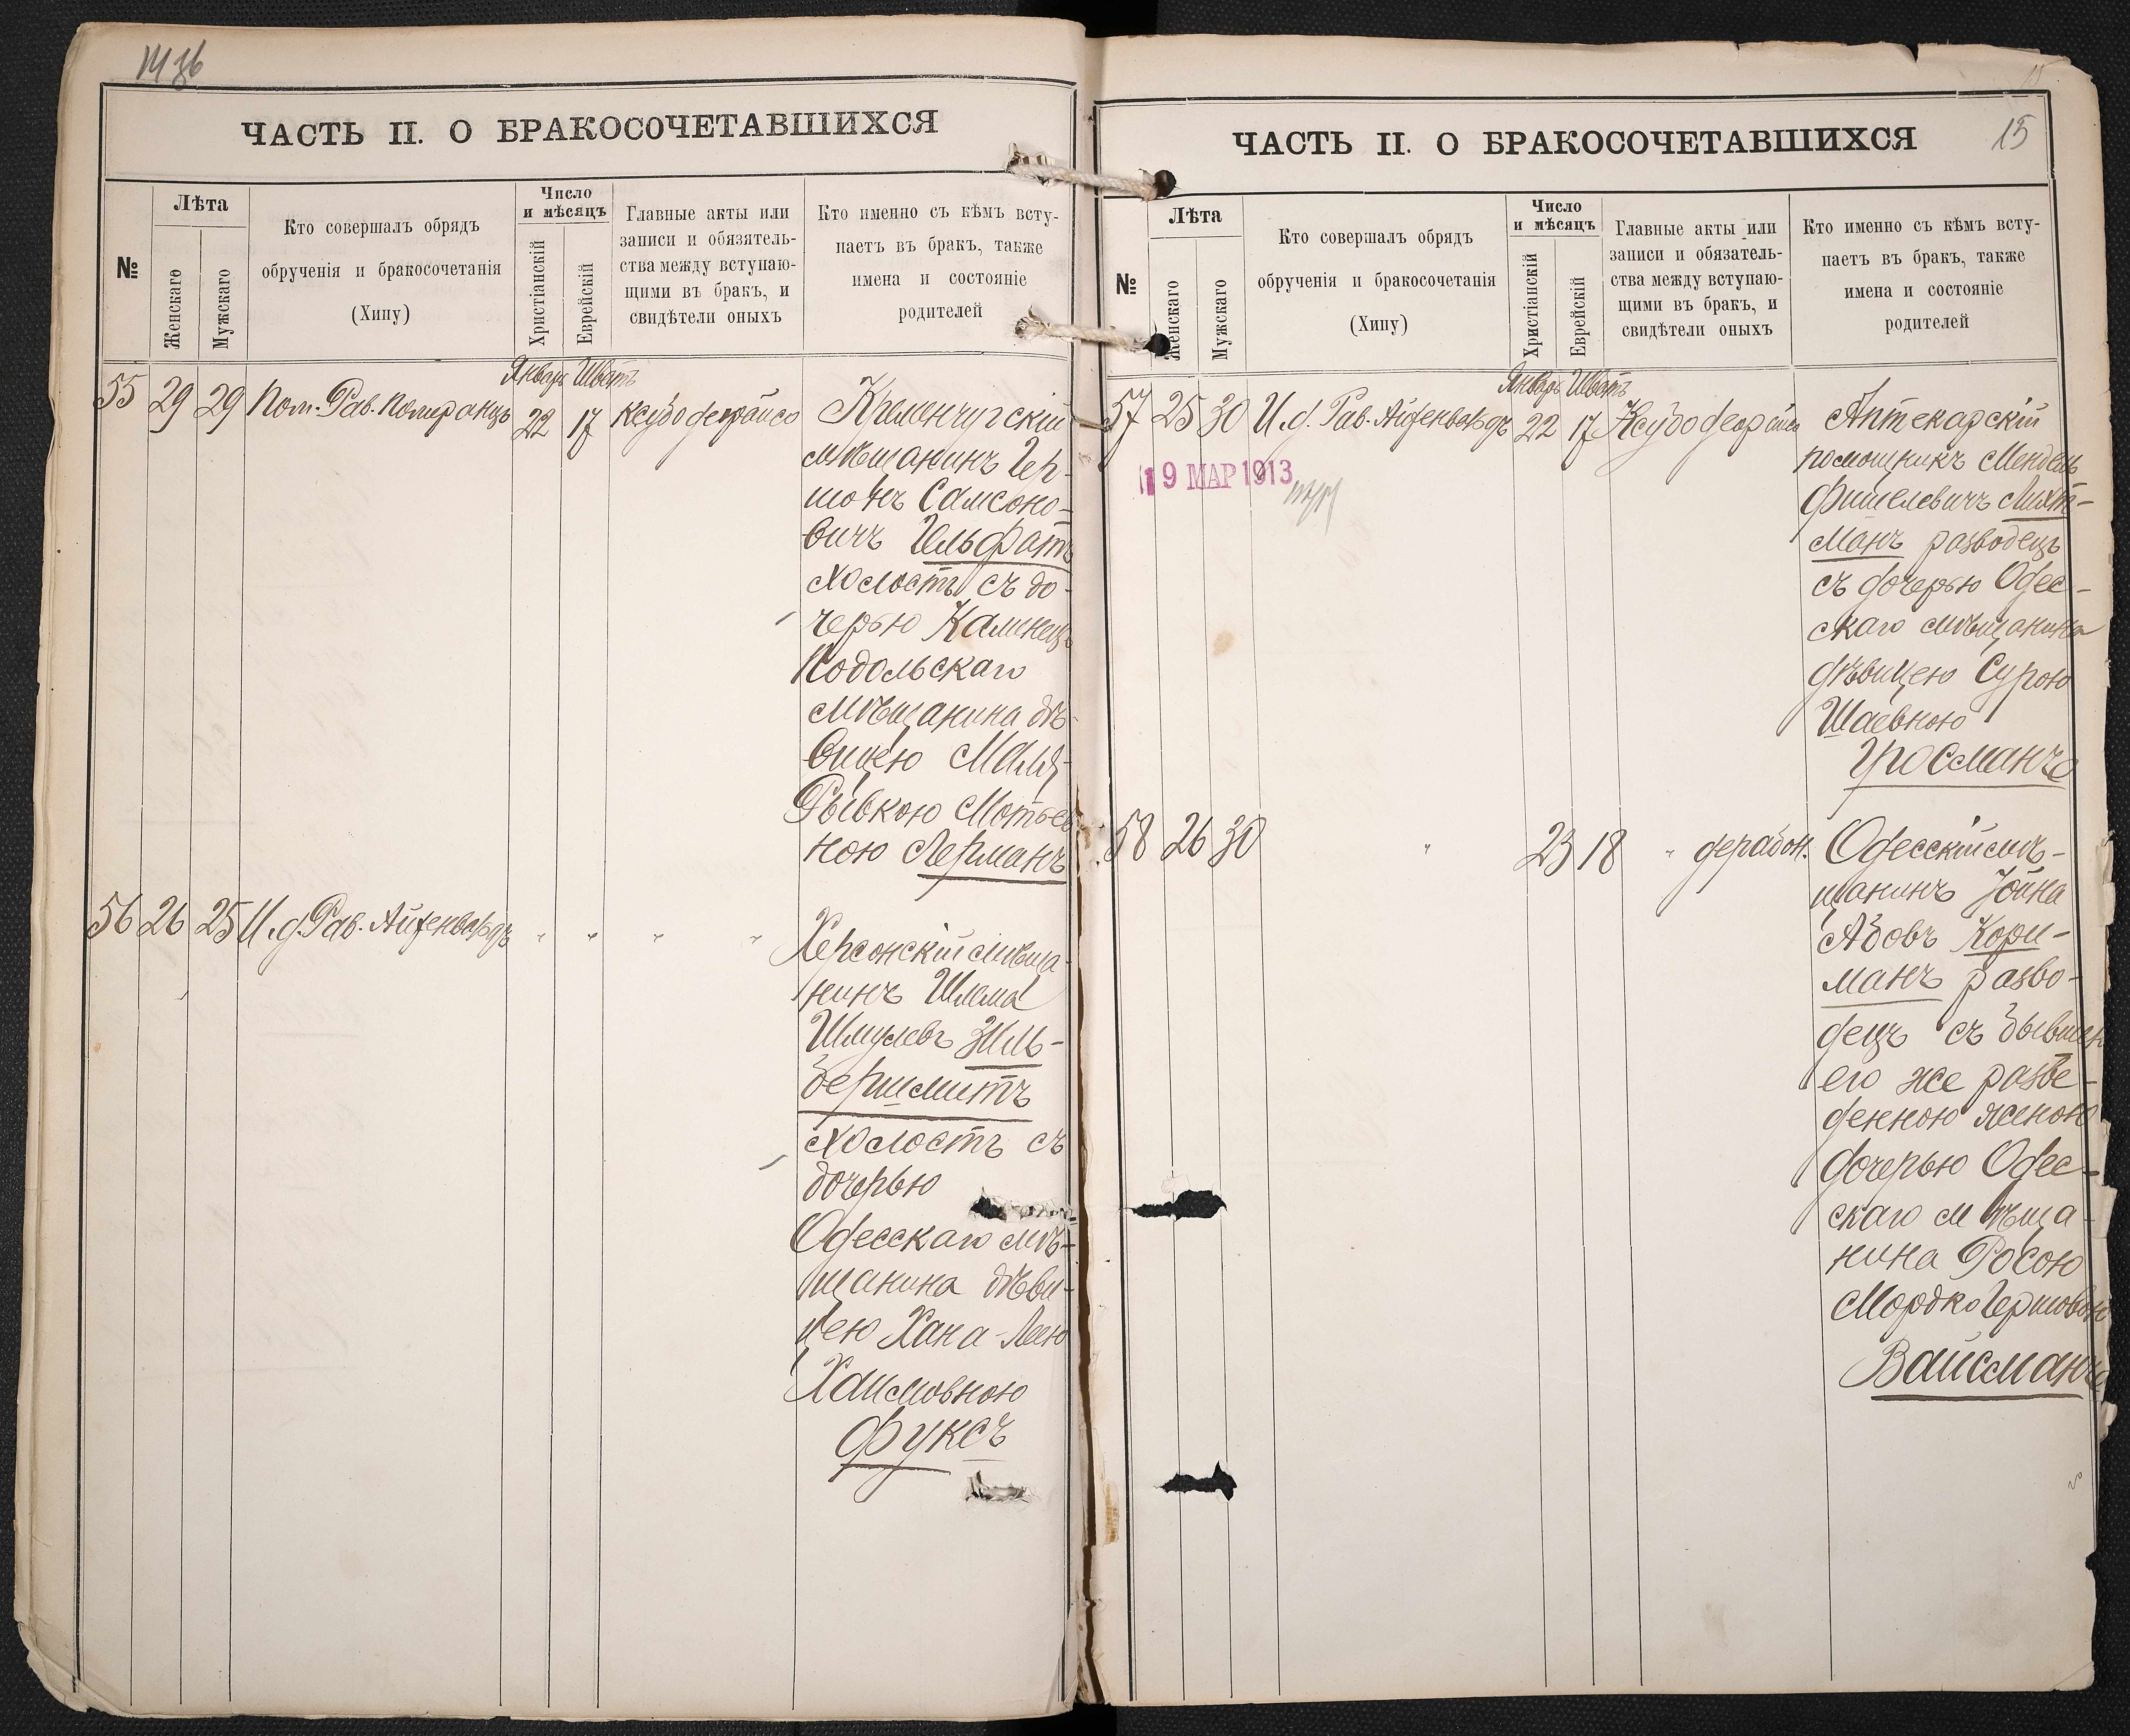 ЧАСТЬ II. О БРАКОСОЧЕТАВШИХСЯ
№
Лѣта
Женскаго
Мужскаго
Кто совершалъ обрядъ
обрученія и бракосочетанія
(Хипу)
Число
и мѣсяцъ
Христіанскій
Еврейскій
Главные акты или
записи и обязатель-
ства между вступаю-
щими въ бракъ, и
свидѣтели оныхъ
Кто именно съ кѣмъ всту-
паетъ въ бракъ, также
имена и состояніе
родителей
Январь Шватъ
55 29 29 Пом. Рав. Померанцъ 22 17
Кременчугскій
мѣщанинъ Гер-
шонъ Самсоно-
вичъ Гельфатъ
холостъ съ до-
черью Каменецъ
Подольскаго
мѣщанина дѣ-
вицею
Рывкою Мотьев-
ною Лерманъ
56 26 25 И.д. Рав. Айзенвардъ " " " "
Херсонскій мѣща-
нинъ Шлема
Шмулевъ Зиль-
бершмитъ
холостъ съ
дочерью
Одесскаго мѣ-
щанина дѣви-
цею Хана-Леею
Хаимовною
Фуксъ
ЧАСТЬ II. О БРАКОСОЧЕТАВШИХСЯ
15
№
Лѣта
Женскаго
Мужскаго
Кто совершалъ обрядъ
обрученія и бракосочетанія
(Хипу)
Число
и мѣсяцъ
Христіанскій
Еврейскій
Главные акты или
записи и обязатель-
ства между вступаю-
щими въ бракъ, и
свидѣтели оныхъ
Кто именно съ кѣмъ всту-
паетъ въ бракъ, также
имена и состояніе
родителей
Январь Шватъ
57 25 30 И.д. Рав. Айзенвардъ 22 17
19 МАР 1913
Аптекарскій
помощникъ Мендель
Фишелевичъ Лихт-
манъ разводецъ
съ дочерью Одес-
скаго мѣщанина
дѣвицею Сурою
Шаевною
Гросманъ
58 26 30 " 23 18 "
Одесскій мѣ-
щанинъ Іойна
Абовъ Кори-
манъ разво-
децъ съ бывшею
его же разве-
денною женою
дочерью Одес-
скаго мѣща-
нина Росою
МордкоГершовою
Вайсманъ